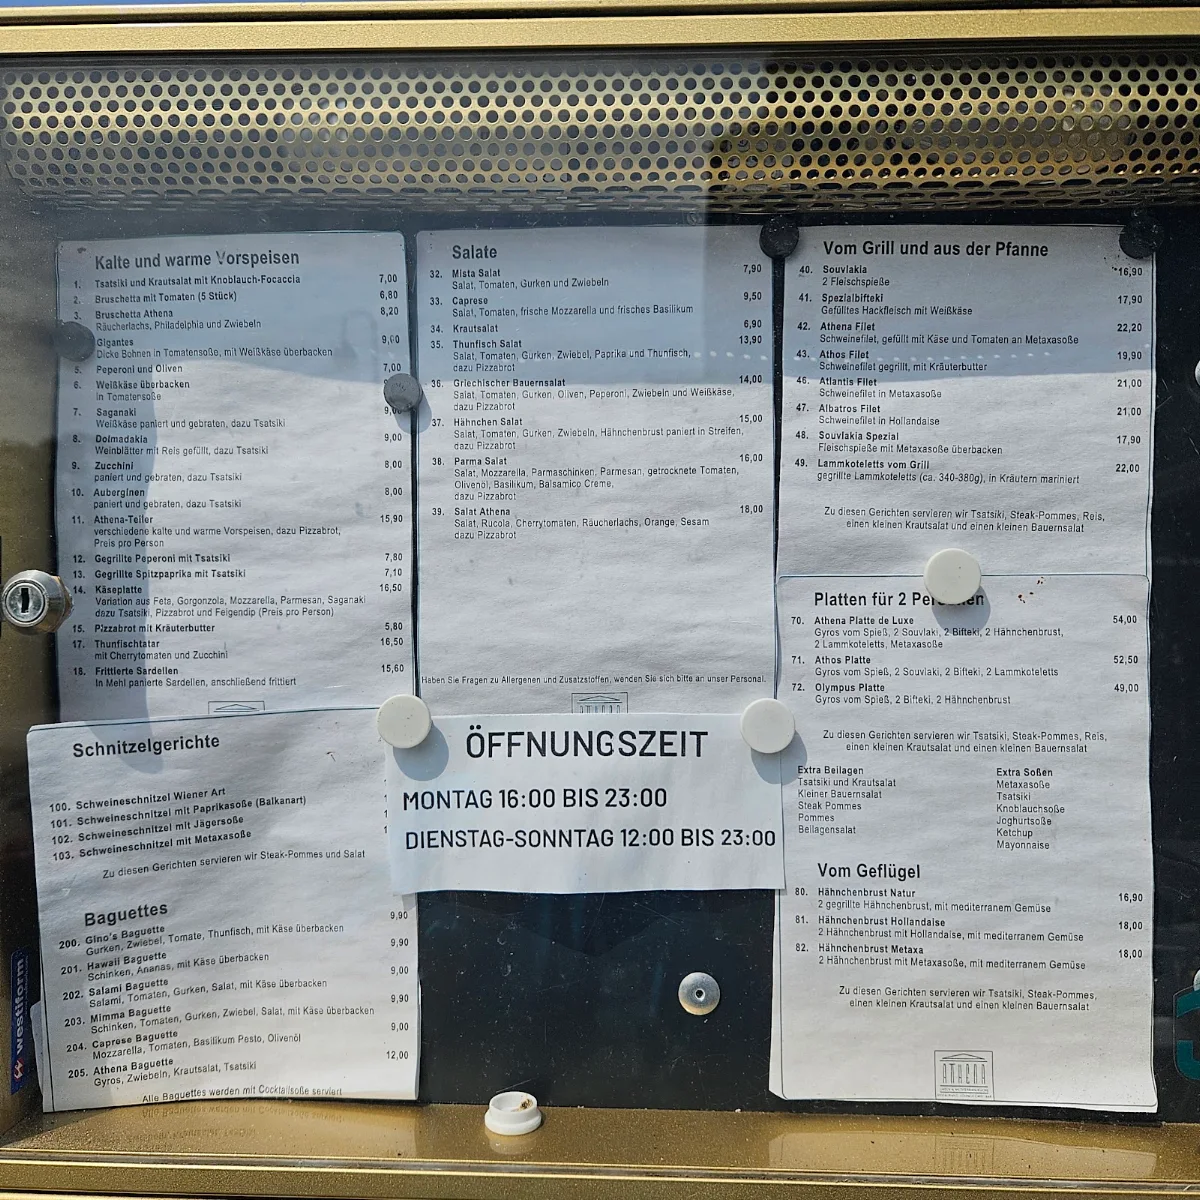 Kalte und warme Vorspeisen
1. Tsatsiki und Krautsalat mit Knoblauch-Focaccia 7,00
2. Bruschetta mit Tomaten (5 Stück) 6,80
3. Bruschetta Athena 8,20
Räucherlachs, Philadelphia und Zwiebeln
Gigantes 9,00
Dicke Bohnen in Tomatensoße, mit Weißkäse überbacken
5. Peperoni und Oliven 7,00
6. Weißkäse überbacken
in Tomatensoße
7. Saganaki 9,00
Weißkäse paniert und gebraten, dazu Tsatsiki
8. Dolmadakia 9,00
Weinblätter mit Reis gefüllt, dazu Tsatsiki
9. Zucchini 8,00
paniert und gebraten, dazu Tsatsiki
10. Auberginen 8,00
paniert und gebraten, dazu Tsatsiki
11. Athena-Teller 15,90
verschiedene kalte und warme Vorspeisen, dazu Pizzabrot,
Preis pro Person
12. Gegrillte Peperoni mit Tsatsiki 7,80
13. Gegrillte Spitzpaprika mit Tsatsiki 7,10
14. Käseplatte 16,50
Variation aus Feta, Gorgonzola, Mozzarella, Parmesan, Saganaki
dazu Tsatsiki, Pizzabrot und Feigendip (Preis pro Person)
15. Pizzabrot mit Kräuterbutter 5,80
17. Thunfischtatar 16,50
mit Cherrytomaten und Zucchini
18. Frittierte Sardellen 15,60
In Mehl panierte Sardellen, anschließend frittiert
Salate
32. Mista Salat 7,90
Salat, Tomaten, Gurken und Zwiebeln
33. Caprese 9,50
Salat, Tomaten, frische Mozzarella und frisches Basilikum
34. Krautsalat 6,90
35. Thunfisch Salat 13,90
Salat, Tomaten, Gurken, Zwiebel, Paprika und Thunfisch,
dazu Pizzabrot
36. Griechischer Bauernsalat 14,00
Salat, Tomaten, Gurken, Oliven, Peperoni, Zwiebeln und Weißkäse,
dazu Pizzabrot
37. Hähnchen Salat 15,00
Salat, Tomaten, Gurken, Zwiebeln, Hähnchenbrust paniert in Streifen,
dazu Pizzabrot
38. Parma Salat 16,00
Salat, Mozzarella, Parmaschinken, Parmesan, getrocknete Tomaten,
Olivenöl, Basilikum, Balsamico Creme,
dazu Pizzabrot
39. Salat Athena 18,00
Salat, Rucola, Cherrytomaten, Räucherlachs, Orange, Sesam
dazu Pizzabrot
Haben Sie Fragen zu Allergenen und Zusatzstoffen, wenden Sie sich bitte an unser Personal.
ATHENA
Vom Grill und aus der Pfanne
40. Souvlakia 16,90
2 Fleischspieße
41. Spezialbifteki 17,90
Gefülltes Hackfleisch mit Weißkäse
42. Athena Filet 22,20
Schweinefilet, gefüllt mit Käse und Tomaten an Metaxasoße
43. Athos Filet 19,90
Schweinefilet gegrillt, mit Kräuterbutter
46. Atlantis Filet 21,00
Schweinefilet in Metaxasoße
47. Albatros Filet 21,00
Schweinefilet in Hollandaise
48. Souvlakia Spezial 17,90
Fleischspieße mit Metaxasoße überbacken
49. Lammkoteletts vom Grill 22,00
gegrillte Lammkoteletts (ca. 340-380g), in Kräutern mariniert
Zu diesen Gerichten servieren wir Tsatsiki, Steak-Pommes, Reis,
einen kleinen Krautsalat und einen kleinen Bauernsalat
Platten für 2
70. Athena Platte de Luxe 54,00
Gyros vom Spieß, 2 Souvlaki, 2 Bifteki, 2 Hähnchenbrust,
2 Lammkoteletts, Metaxasoße
71. Athos Platte 52,50
Gyros vom Spieß, 2 Souvlaki, 2 Bifteki, 2 Lammkoteletts
72. Olympus Platte 49,00
Gyros vom Spieß, 2 Bifteki, 2 Hähnchenbrust
Zu diesen Gerichten servieren wir Tsatsiki, Steak-Pommes, Reis,
einen kleinen Krautsalat und einen kleinen Bauernsalat
Extra Beilagen
Tsatsiki und Krautsalat
Kleiner Bauernsalat
Steak Pommes
Pommes
Beilagensalat
Extra Soßen
Metaxasoße
Tsatsiki
Knoblauchsoße
Joghurtsoße
Ketchup
Mayonnaise
Vom Geflügel
80. Hähnchenbrust Natur 16,90
2 gegrillte Hähnchenbrust, mit mediterranem Gemüse
81. Hähnchenbrust Hollandaise 18,00
2 Hähnchenbrust mit Hollandaise, mit mediterranem Gemüse
82. Hähnchenbrust Metaxa 18,00
2 Hähnchenbrust mit Metaxasoße, mit mediterranem Gemüse
Zu diesen Gerichten servieren wir Tsatsiki, Steak-Pommes,
einen kleinen Krautsalat und einen kleinen Bauernsalat
ATHENA
ÖFFNUNGSZEIT
MONTAG 16:00 BIS 23:00
DIENSTAG-SONNTAG 12:00 BIS 23:00
Schnitzelgerichte
100. Schweineschnitzel Wiener Art
101. Schweineschnitzel mit Paprikasoße (Balkanart)
102. Schweineschnitzel mit Jägersoße
103. Schweineschnitzel mit Metaxasoße
Zu diesen Gerichten servieren wir Steak-Pommes und Salat
Baguettes
200. Gino's Baguette 9,90
Gurken, Zwiebel, Tomate, Thunfisch, mit Käse überbacken
201. Hawaii Baguette 9,90
Schinken, Ananas, mit Käse überbacken
202. Salami Baguette 9,00
Salami, Tomaten, Gurken, Salat, mit Käse überbacken
203. Mimma Baguette 9,90
Schinken, Tomaten, Gurken, Zwiebel, Salat, mit Käse überbacken
204. Caprese Baguette 9,00
Mozzarella, Tomaten, Basilikum Pesto, Olivenöl
205. Athena Baguette 12,00
Gyros, Zwiebeln, Krautsalat, Tsatsiki
Alle Baguettes werden mit Cocktailsoße serviert
westiform